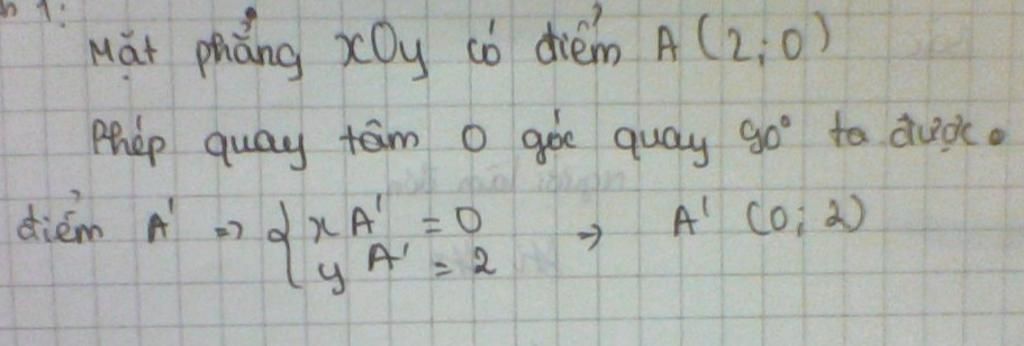 1:
Mặt phẳng xOy có điểm A (2;0)
Phép quay tâm O góc quay 90° ta được.
điểm A' => { x A' = 0 => A' (0; 2)
y A' = 2